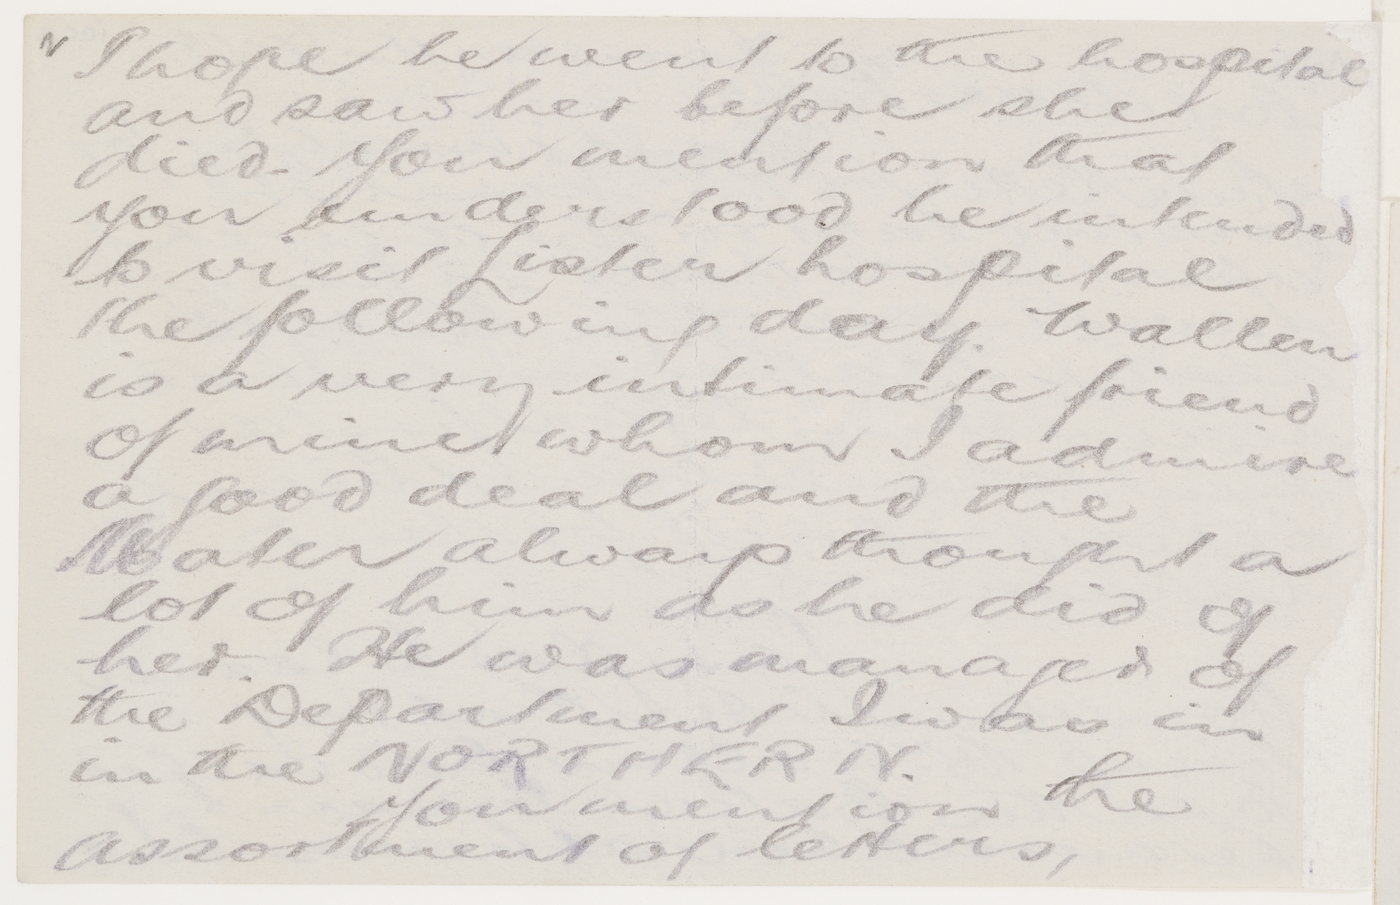 I hope he went to the hospital
and saw her before she
died. You mention that
you understood he intended
to visit Lister hospital
the following day. Wallen
is a very intimate friend
of mine whom I admire
a good deal and the
Mater always thought a
lot of him as he did of
her. He was manager of
the Department I was in
in the NORTHERN.
You mention the
assortment of letters,